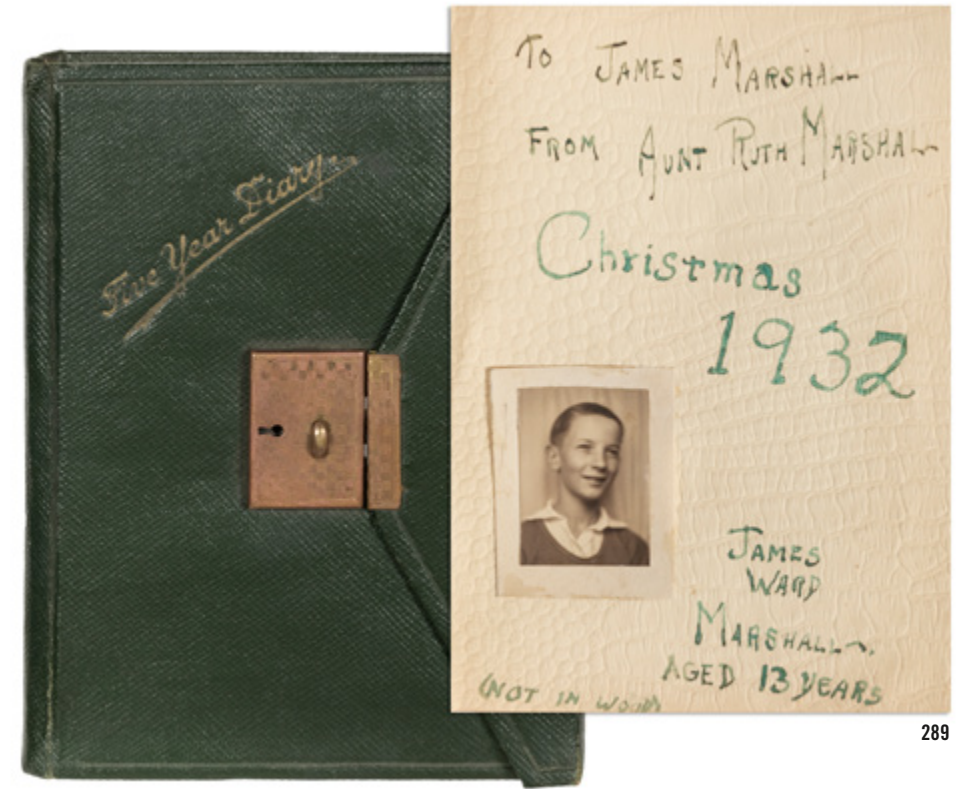 Five Year Diary
To JAMES MARSHALL
FROM AUNT RUTH MARSHALL
Christmas
1932
JAMES
WARD
MARSHALL
AGED 13 YEARS
(NOT IN WOODS
289